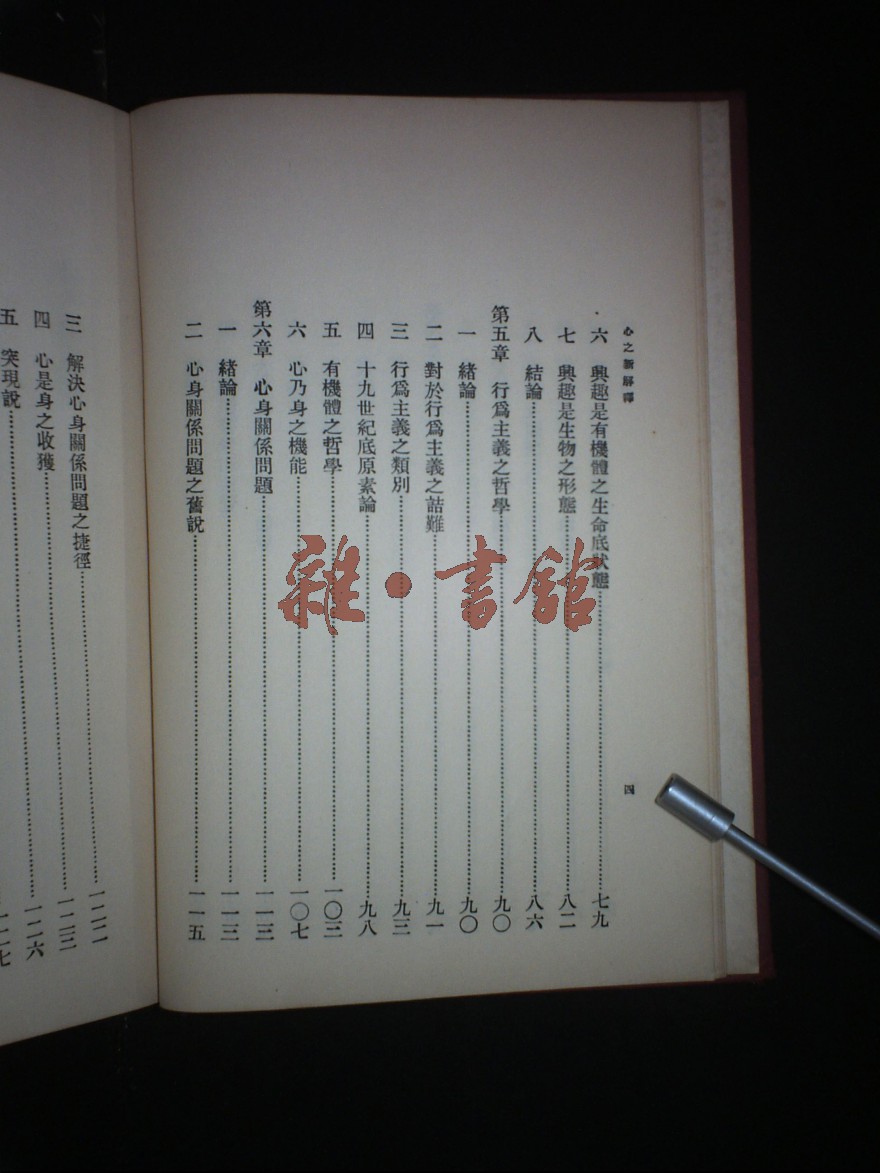 心之新解釋
六 興趣是有機體之生命底狀態……七九
七 興趣是生物之形態……八二
八 結論……八六
第五章 行爲主義之哲學……九〇
一 緒論……九〇
二 對於行爲主義之詰難……九一
三 行爲主義之類別……九三
四 十九世紀底原素論……九八
五 有機體之哲學……一〇三
六 心乃身之機能……一〇七
第六章 心身關係問題……一一三
一 緒論……一一三
二 心身關係問題之舊說……一一五
四
三 解決心身關係問題之捷徑……一二二
四 心是身之收獲……一二三
五 突現說……一二六
一二七
雜·書館